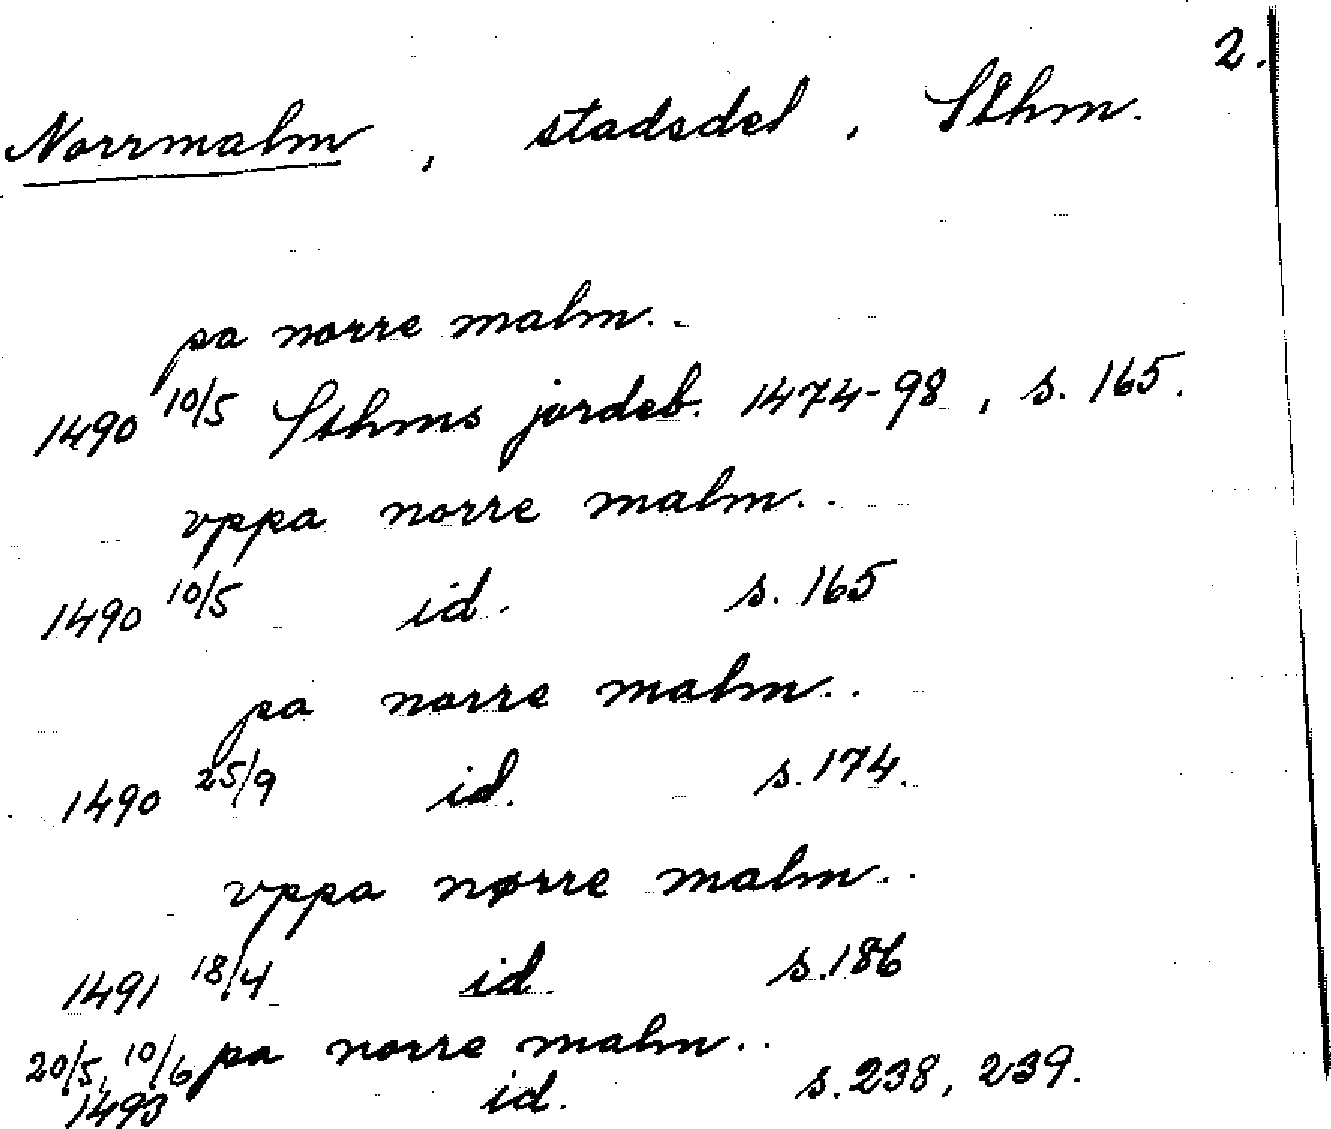 2.
Norrmalm, stadsdel, Sthm.
pa norre malm..
1490 10/5 Sthms jordeb. 1474-98, s. 165.
vppa norre malm..
1490 10/5 id. s. 165
pa norre malm..
1490 25/9 id. s. 174.
vppa nørre malm..
1491 18/4 id s. 186
pa norre malm..
20/5, 10/6 1493 id. s. 238, 239.